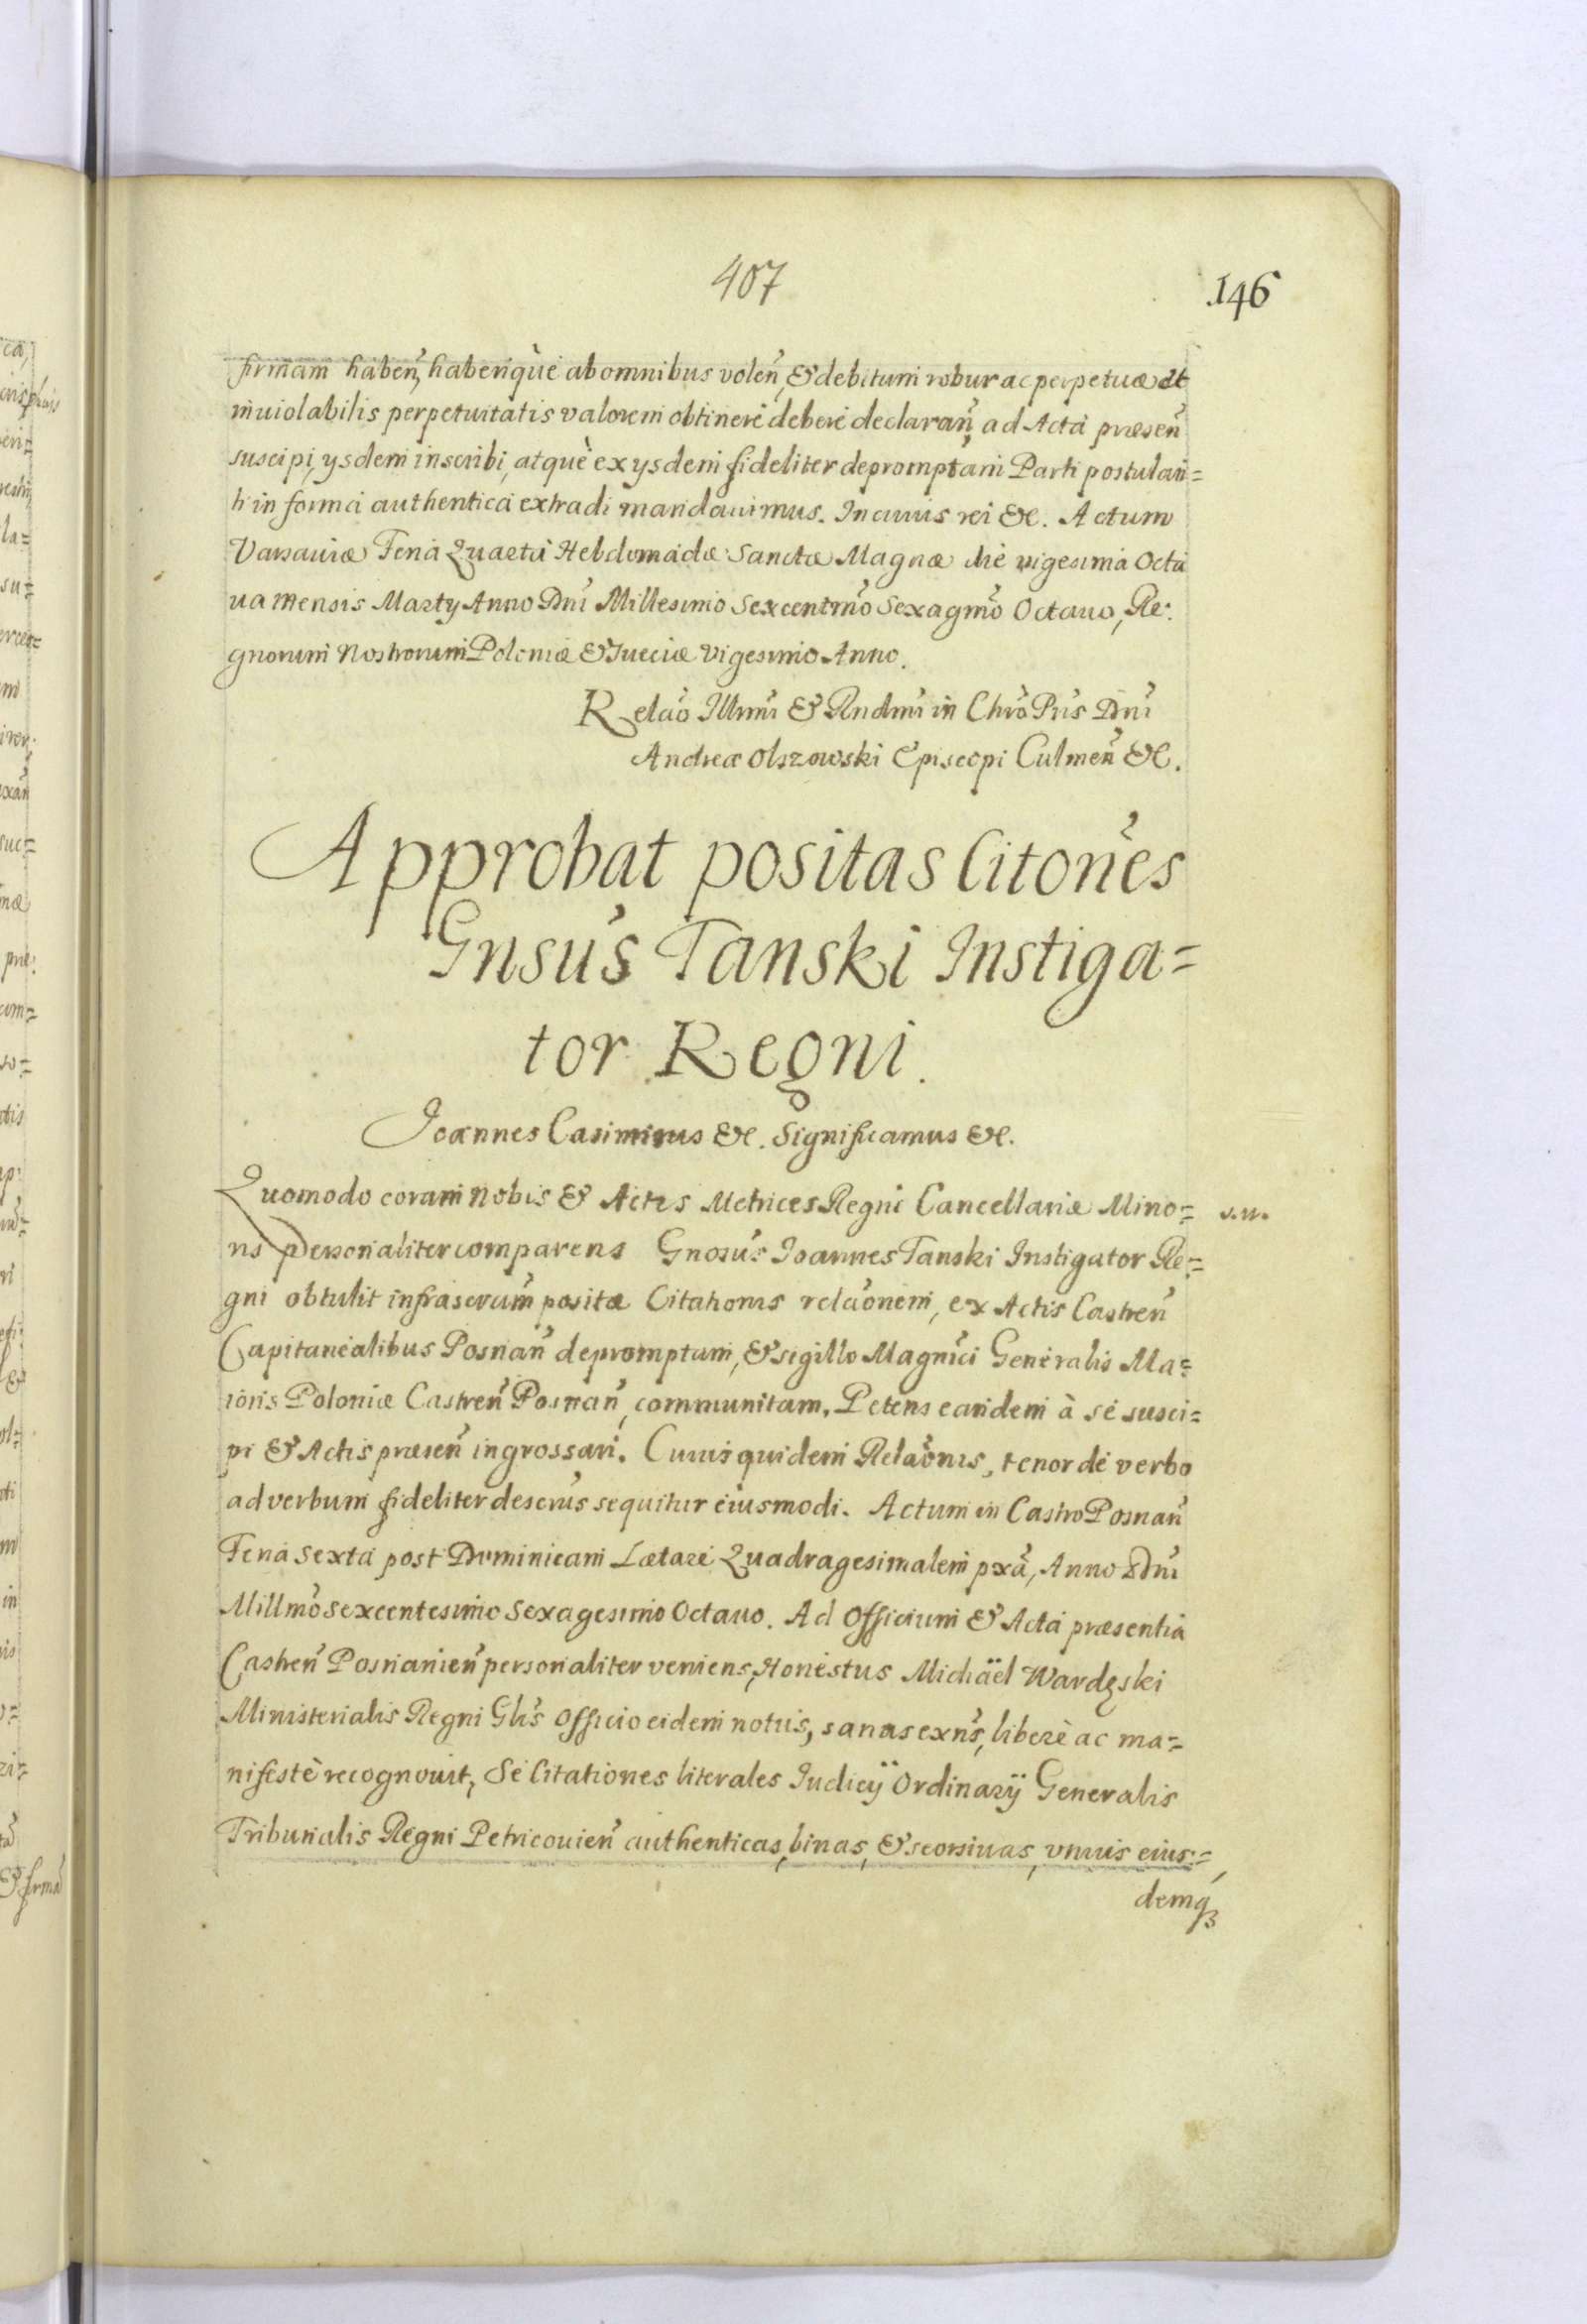 407
146
firmam haben, haberiquè ab omnibus volen, & debitum robur ac perpetuæ et
inuiolabilis perpetuitatis valorem obtineri deberè declaran, ad Acta præsen
suscipi, ysdem inscribi, atquè ex ysdem fideliter depromptam Parti postulan=
ti in forma authentica extradi mandauimus. In cuius rei &c. Actum
Varsauiæ Feria Quarta Hebdomadæ Sanctæ Magnæ die vigesima Octa
ua mensis Marty Anno Dni Millesimo Sexcentmo Sexagmo Octauo, Re:
gnorum Nostrorum Poloniæ & Sueciæ Vigesimo Anno.
Relao Illmi & Rndmi in Chro Pris Dni
Andreæ Olszowski Episcopi Culmen &c.
Approbat positas Citones
Gnsus Tanski Instiga=
tor Regni.
Joannes Casimirus &c. Significamus &c.
Quomodo coram Nobis & Actis Metrices Regni Cancellariæ Mino=
ris personaliter comparens Gnosus Joannes Tanski Instigator Re=
gni obtulit infrascrum positæ Citationis relaonem, ex Actis Castren
Capitanealibus Posnan depromptam, & sigillo Magnici Generalis Ma=
ioris Poloniæ Castren Posnan, communitam. Petens eandem à sè susci=
pi & Actis præsen ingrossari. Cuius quidem Relaonis, tenor dè verbo
ad verbum fideliter descrius sequitur eiusmodi. Actum in Castro Posnan
Feria Sexta post Dominicam Lætare Quadragesimalem pxa, Anno Dni
Millmo Sexcentesimo Sexagesimo Octauo. Ad Officium & Acta præsentia
Castren Posnanien personaliter veniens, Honestus Michäel Wardęski
Ministerialis Regni Glis Officio eidem notus, sanus exns, liberè ac ma=
nifestè recognouit, Sè Citationes literales Iudicÿ Ordinarÿ Generalis
Tribunalis Regni Petricouien authenticas, binas, & seorsiuas, vnius eius=
demq3